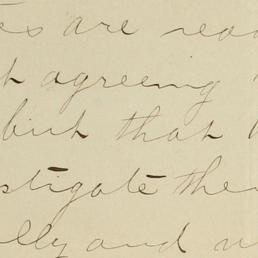 es are rea
agreeing
but that
stigate the
lly and